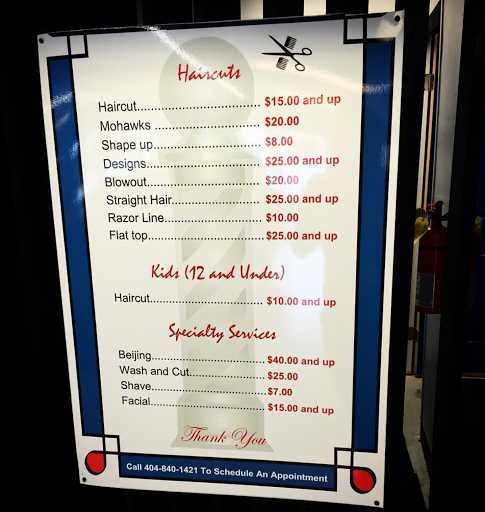 Haircuts
Haircut.............................. $15.00 and up
Mohawks ........................... $20.00
Shape up........................... $8.00
Designs............................. $25.00 and up
Blowout............................. $20.00
Straight Hair...................... $25.00 and up
Razor Line........................ $10.00
Flat top.............................. $25.00 and up
Kids (12 and Under)
Haircut.............................. $10.00 and up
Specialty Services
Beijing.............................. $40.00 and up
Wash and Cut.................... $25.00
Shave................................ $7.00
Facial................................ $15.00 and up
Thank You
Call 404-840-1421 To Schedule An Appointment